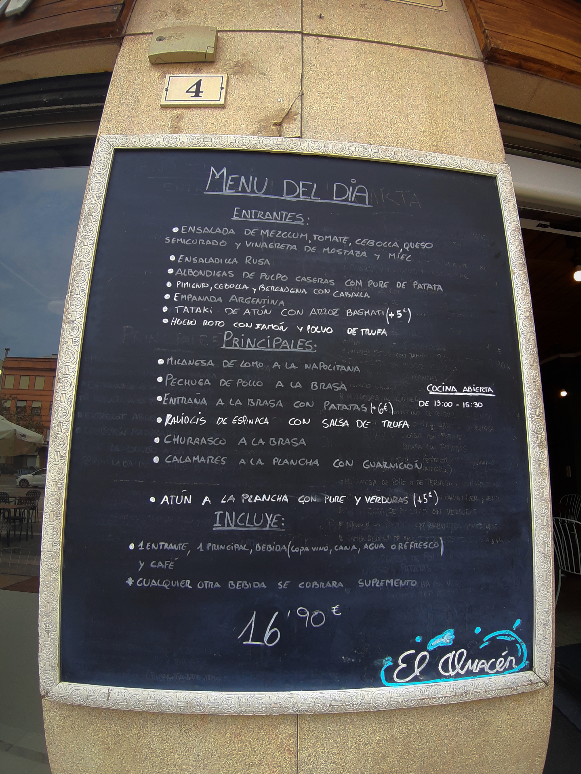 4
MENU DEL DIA
ENTRANTES:
• ENSALADA DE MEZCLUM, TOMATE, CEBOLLA, QUESO
SEMICURADO Y VINAGRETA DE MOSTAZA Y MIEL
• ENSALADILLA RUSA
• ALBONDIGAS DE PULPO CASERAS CON PURE DE PATATA
• PIMIENTO, CEBOLLA Y BERENGENA CON CABALLA
• EMPANADA ARGENTINA
• TATAKI DE ATÚN CON ARROZ BASMATI (+5€)
• HUEVO ROTO CON JAMÓN Y POLVO DE TRUFA
PRINCIPALES:
• MILANESA DE LOMO A LA NAPOLITANA
• PECHUGA DE POLLO A LA BRASA
• ENTRAÑA A LA BRASA CON PATATAS (+6€)
• RAVIOLIS DE ESPINACA CON SALSA DE TRUFA
• CHURRASCO A LA BRASA
• CALAMARES A LA PLANCHA CON GUARNICIÓN
• ATÚN A LA PLANCHA CON PURE Y VERDURAS (+5€)
COCINA ABIERTA
DE 13:00 - 16:30
INCLUYE:
• 1 ENTRANTE, 1 PRINCIPAL, BEBIDA (COPA VINO, CAÑA, AGUA O REFRESCO)
Y CAFÉ
* CUALQUIER OTRA BEBIDA SE COBRARA SUPLEMENTO
16'90€
El Almacén